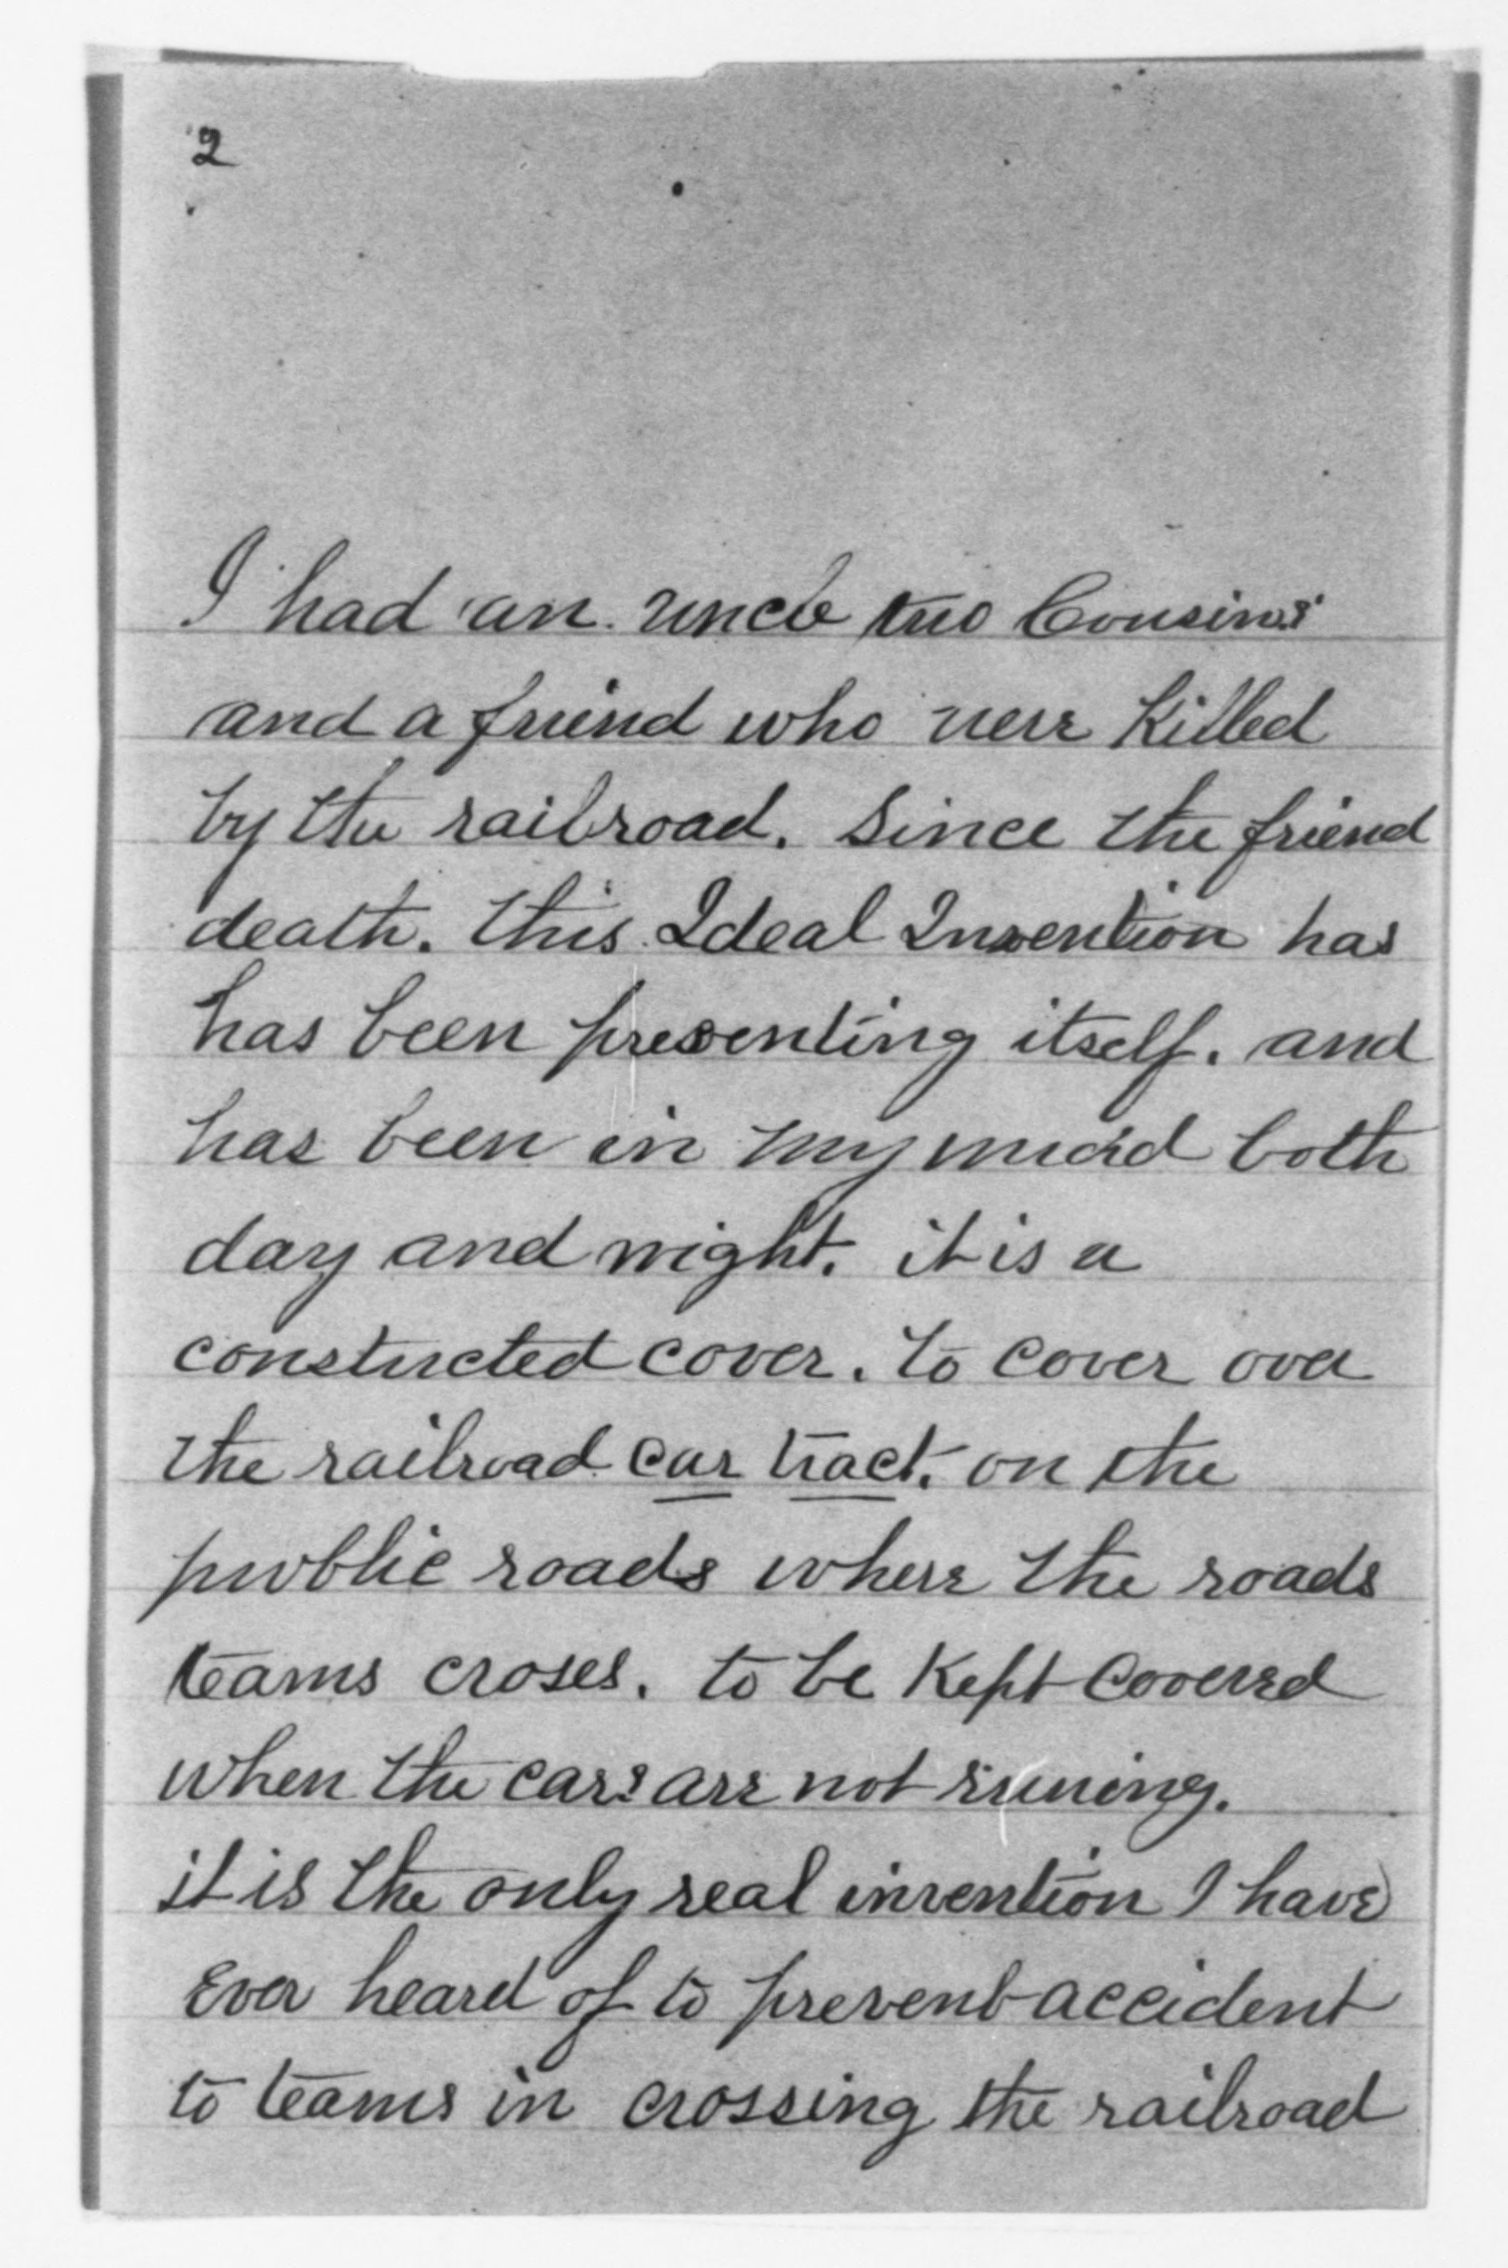 2
I had an uncle two Cousins
and a friend who were Killed
by the railroad. Since the friend
death. this Ideal Invention has
has been presenting itself. and
has been in my mind both
day and night. it is a
constructed cover. to cover over
the railroad car tract. on the
public roads where the roads
teams croses. to be Kept Covered
when the cars are not runing.
it is the only real invention I have
Ever heard of to prevent accident
to teams in crossing the railroad